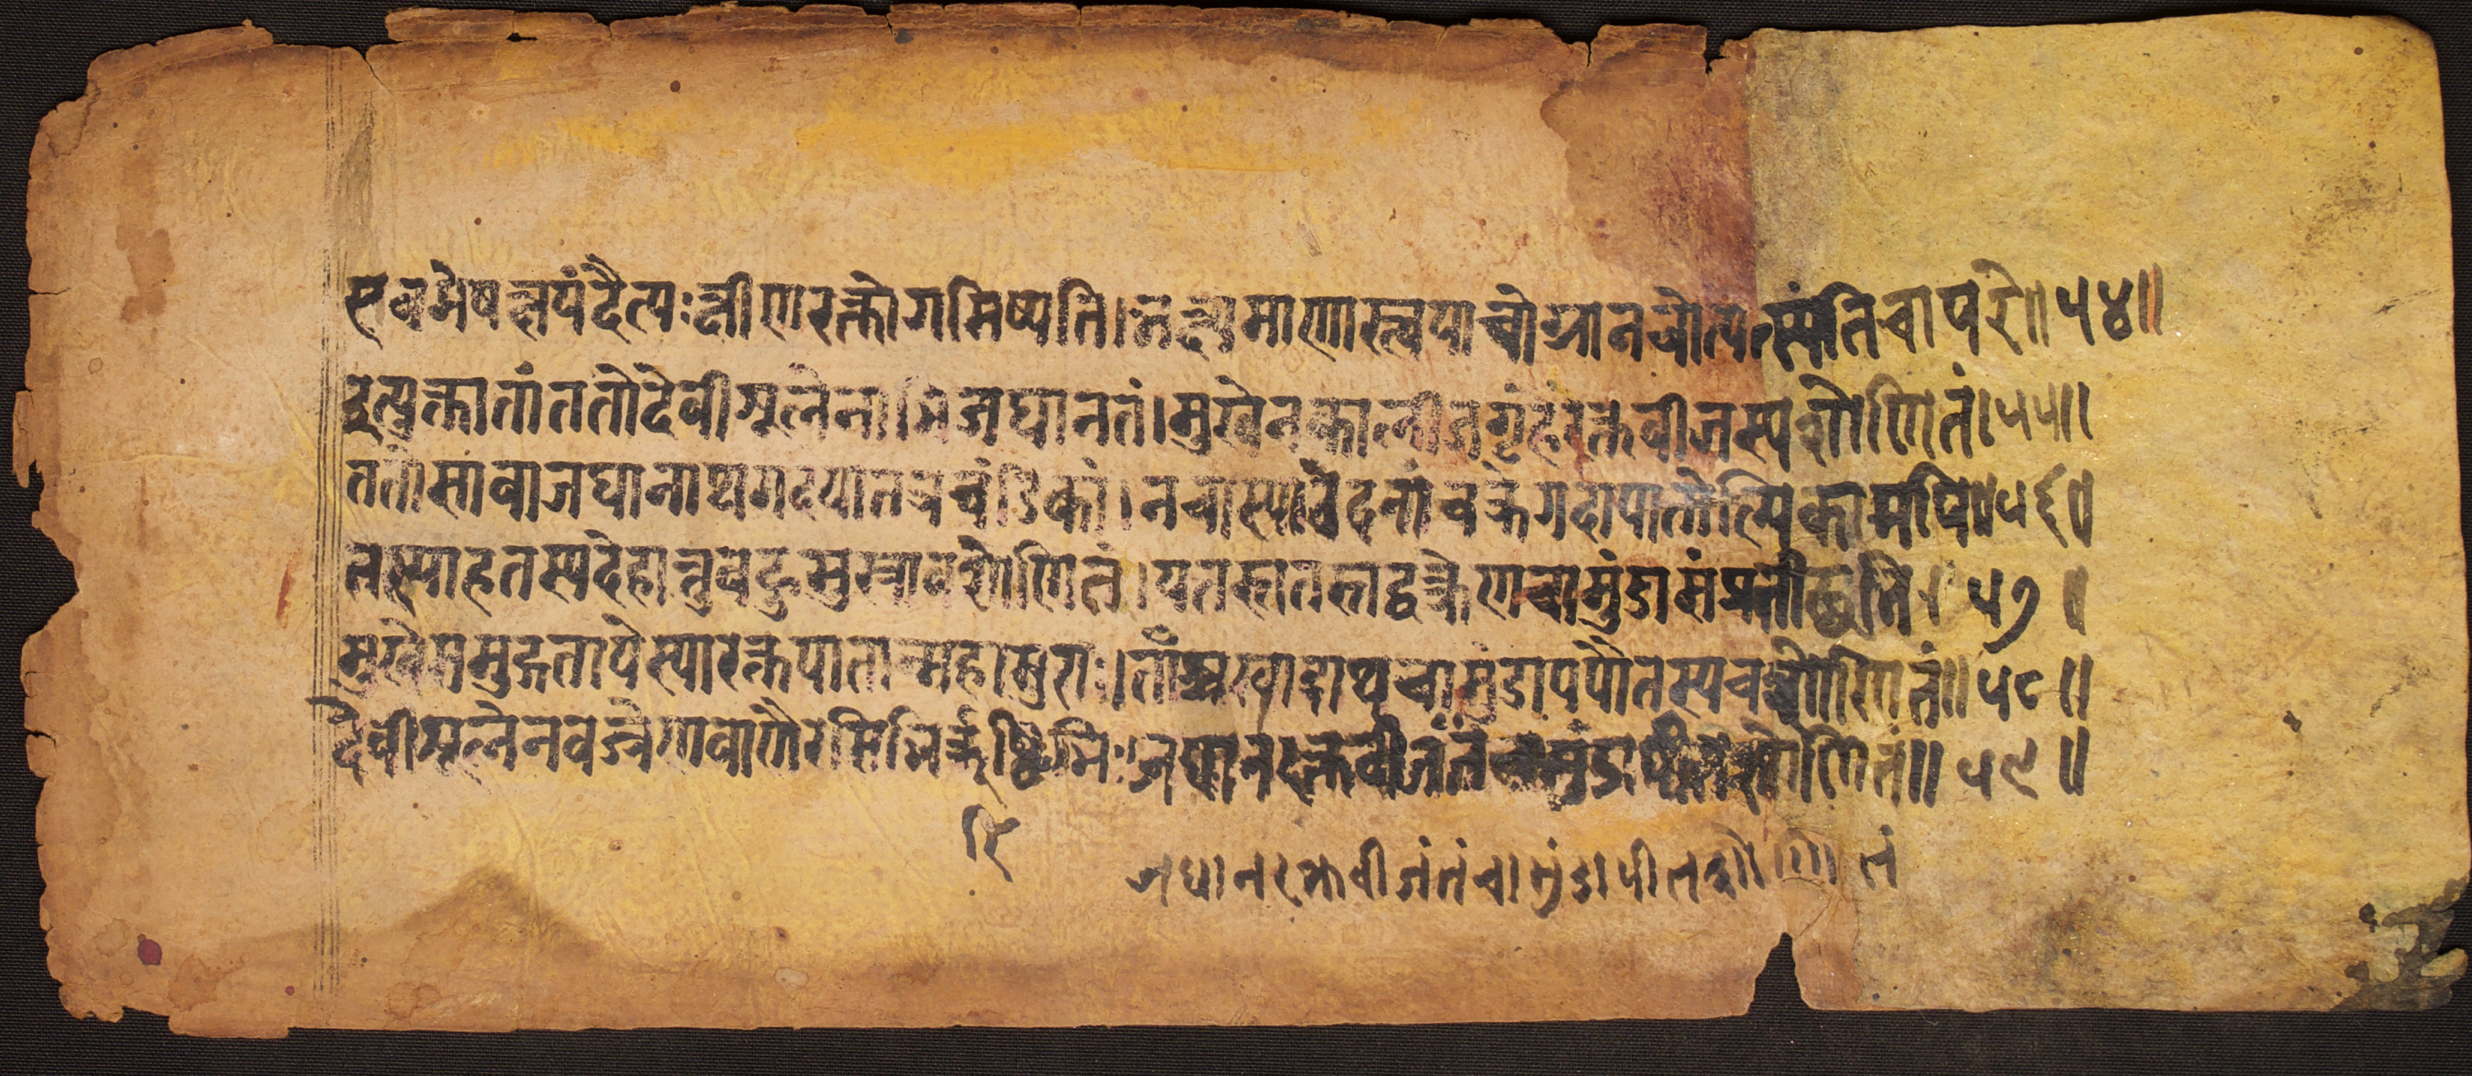 एवमेषक्षयंदैत्यःक्षीणरक्तोगमिष्यति।भक्ष्यमाणास्त्वयाचोग्रानचोत्पत्स्यंतिचापरे॥५४॥
इत्युक्तातांततोदेवीशूलेनाभिजघानतं।मुखेनकालीजगृहेरक्तवीजस्यशोणितं।५५॥
ततोसावाजघानाथगदयातत्रचंडिकां।नचास्यावेदनांचक्रेगदापातोल्पिकामपि॥५६॥
तस्याहतस्यदेहात्तुवहुसुस्रावशोणितं।यतस्ततस्तद्वक्त्रेणचामुंडासंप्रतीछति।५७॥
मुखेसमुद्गतायेस्यारक्तपातान्महासुराः।ताँश्चखादाथचामुंडापपौतस्यचशोणितं॥५८॥
देवीशूलेनवज्रेणवाणैरसिभिर्ऋष्टिभिः।जघानरक्तवीजंतंचामुंडापीतशोणितं॥५९॥
रि
जघानरक्तवीजंतंचामुंडापीतशोणितं